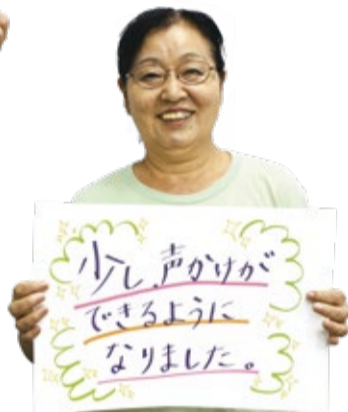 少し、声かけが
できるように
なりました。